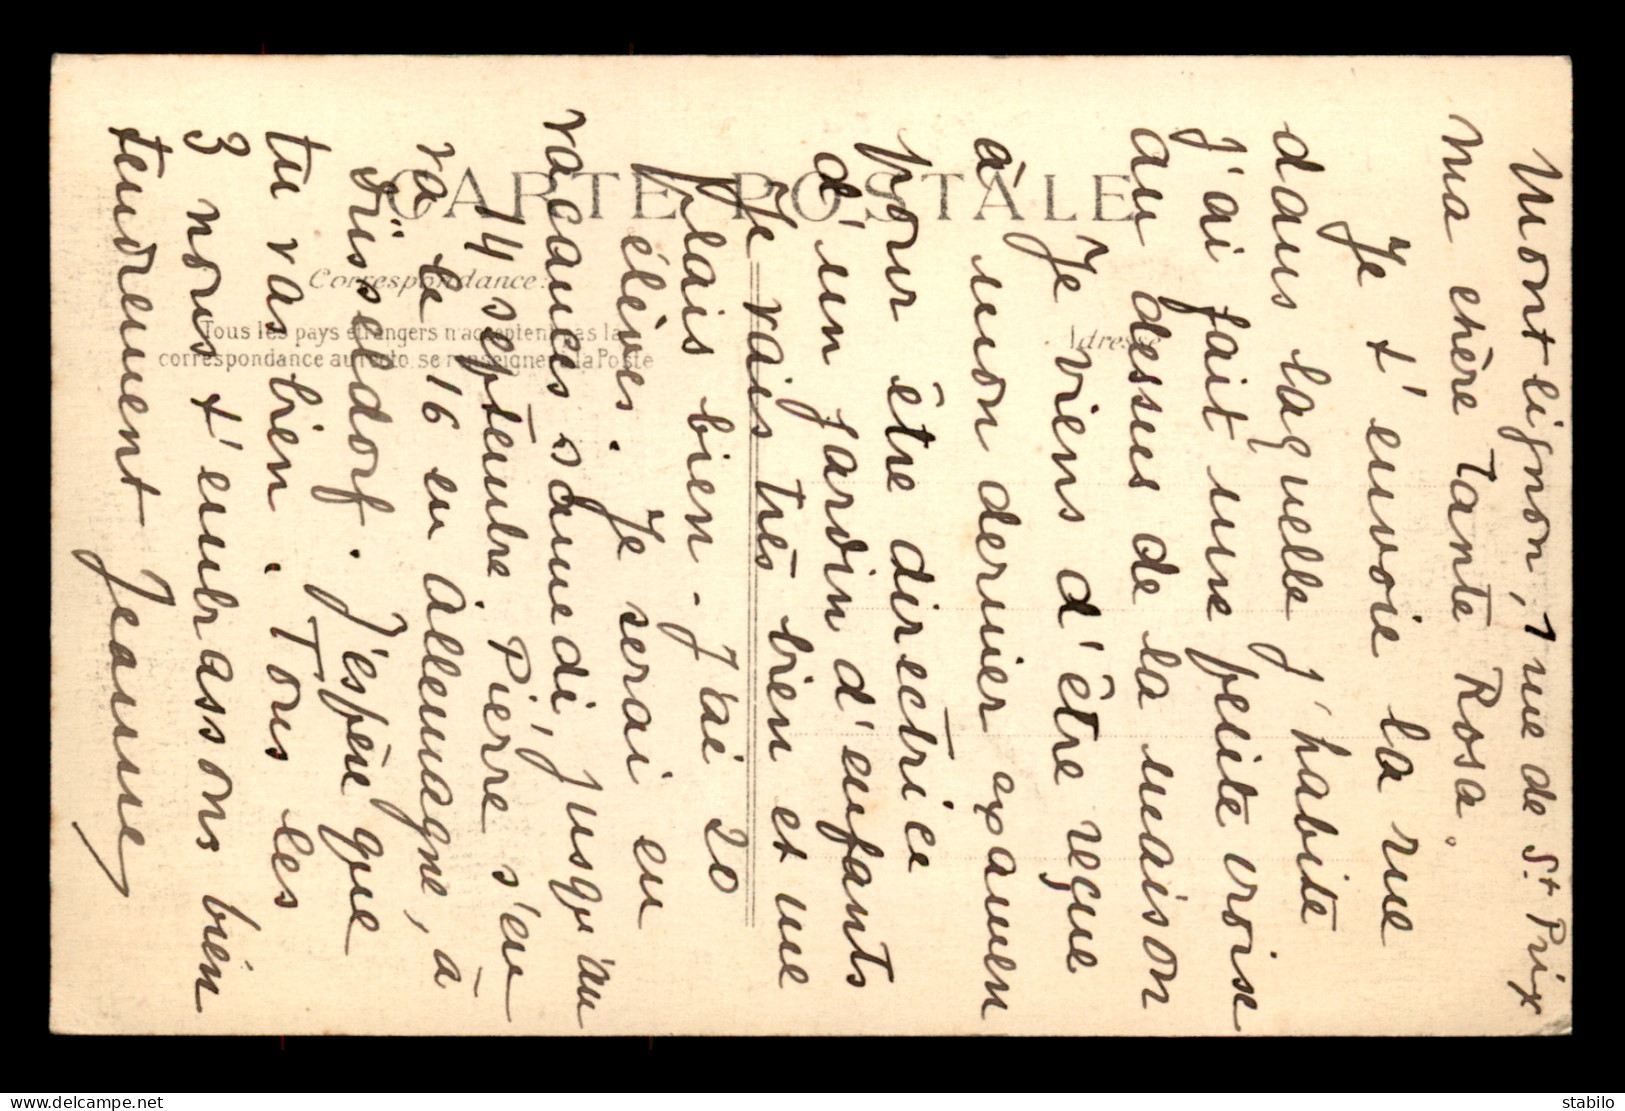 Montlignon, 1 rue de St Prix
ma chère Tante Rosa,
Je t'envoie la rue
dans laquelle j'habite
j'ai fait une petite croise
au dessus de la maison
Je viens d'être reçue
à mon dernier examen
pour être directrice
d'un jardin d'enfants
Je vais très bien et me
plais bien. J'ai 20
élèves. Je serai en
vacances samedi, jusqu'au
14 septembre. Pierre s'en
va le 16 en Allemagne, à
Düsseldorf. J'espère que
tu vas bien. Tous les
3 nous t'embrassons bien
tendrement Jeanne
CARTE POSTALE
Correspondance:
Tous les pays étrangers n'acceptent pas la
correspondance au recto, se renseigner à la Poste
Adresse
stabilo